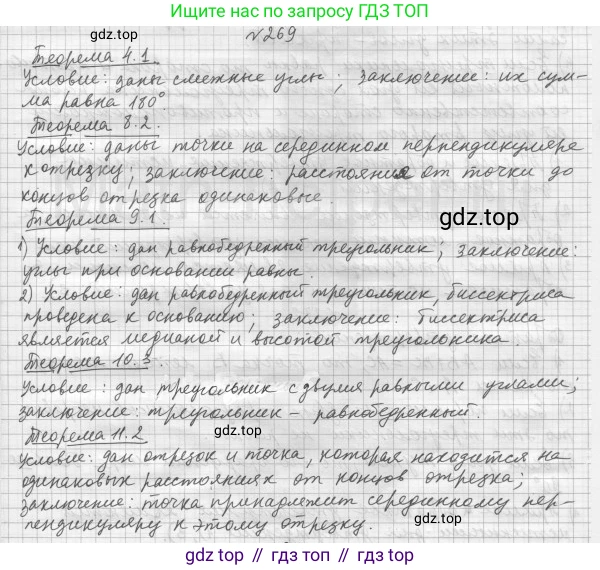 Ищите нас по запросу ГДЗ ТОП
№269
Теорема 4.1
Условие: даны смежные углы; заключение: их сум-
ма равна 180°
Теорема 8.2.
Условие: даны точки на серединном перпендикуляре
к отрезку; заключение: расстояние от точки до
концов отрезка одинаковые.
gdz.top
Теорема 9.1.
1) Условие: дан равнобедренный треугольник; заключение:
углы при основании равны.
2) Условие: дан равнобедренный треугольник, биссектриса
проведена к основанию; заключение: биссектриса
является медианой и высотой треугольника.
Теорема 10.3.
Условие: дан треугольник с двумя равными углами;
заключение: треугольник – равнобедренный.
gdz.top
Теорема 11.2
Условие: дан отрезок и точка, которая находится на
одинаковых расстояниях от концов отрезка;
заключение: точка принадлежит серединному пер-
пендикуляру к этому отрезку.
gdz.top // гдз топ // gdz.top // гдз.top